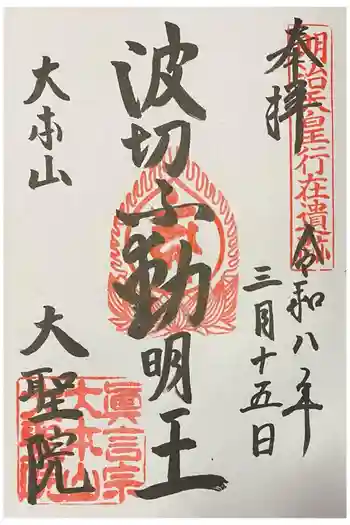 奉拝
明治天皇行在遺跡
令和八年
三月十五日
波切不動明王
大本山
大聖院
眞言宗
大本山